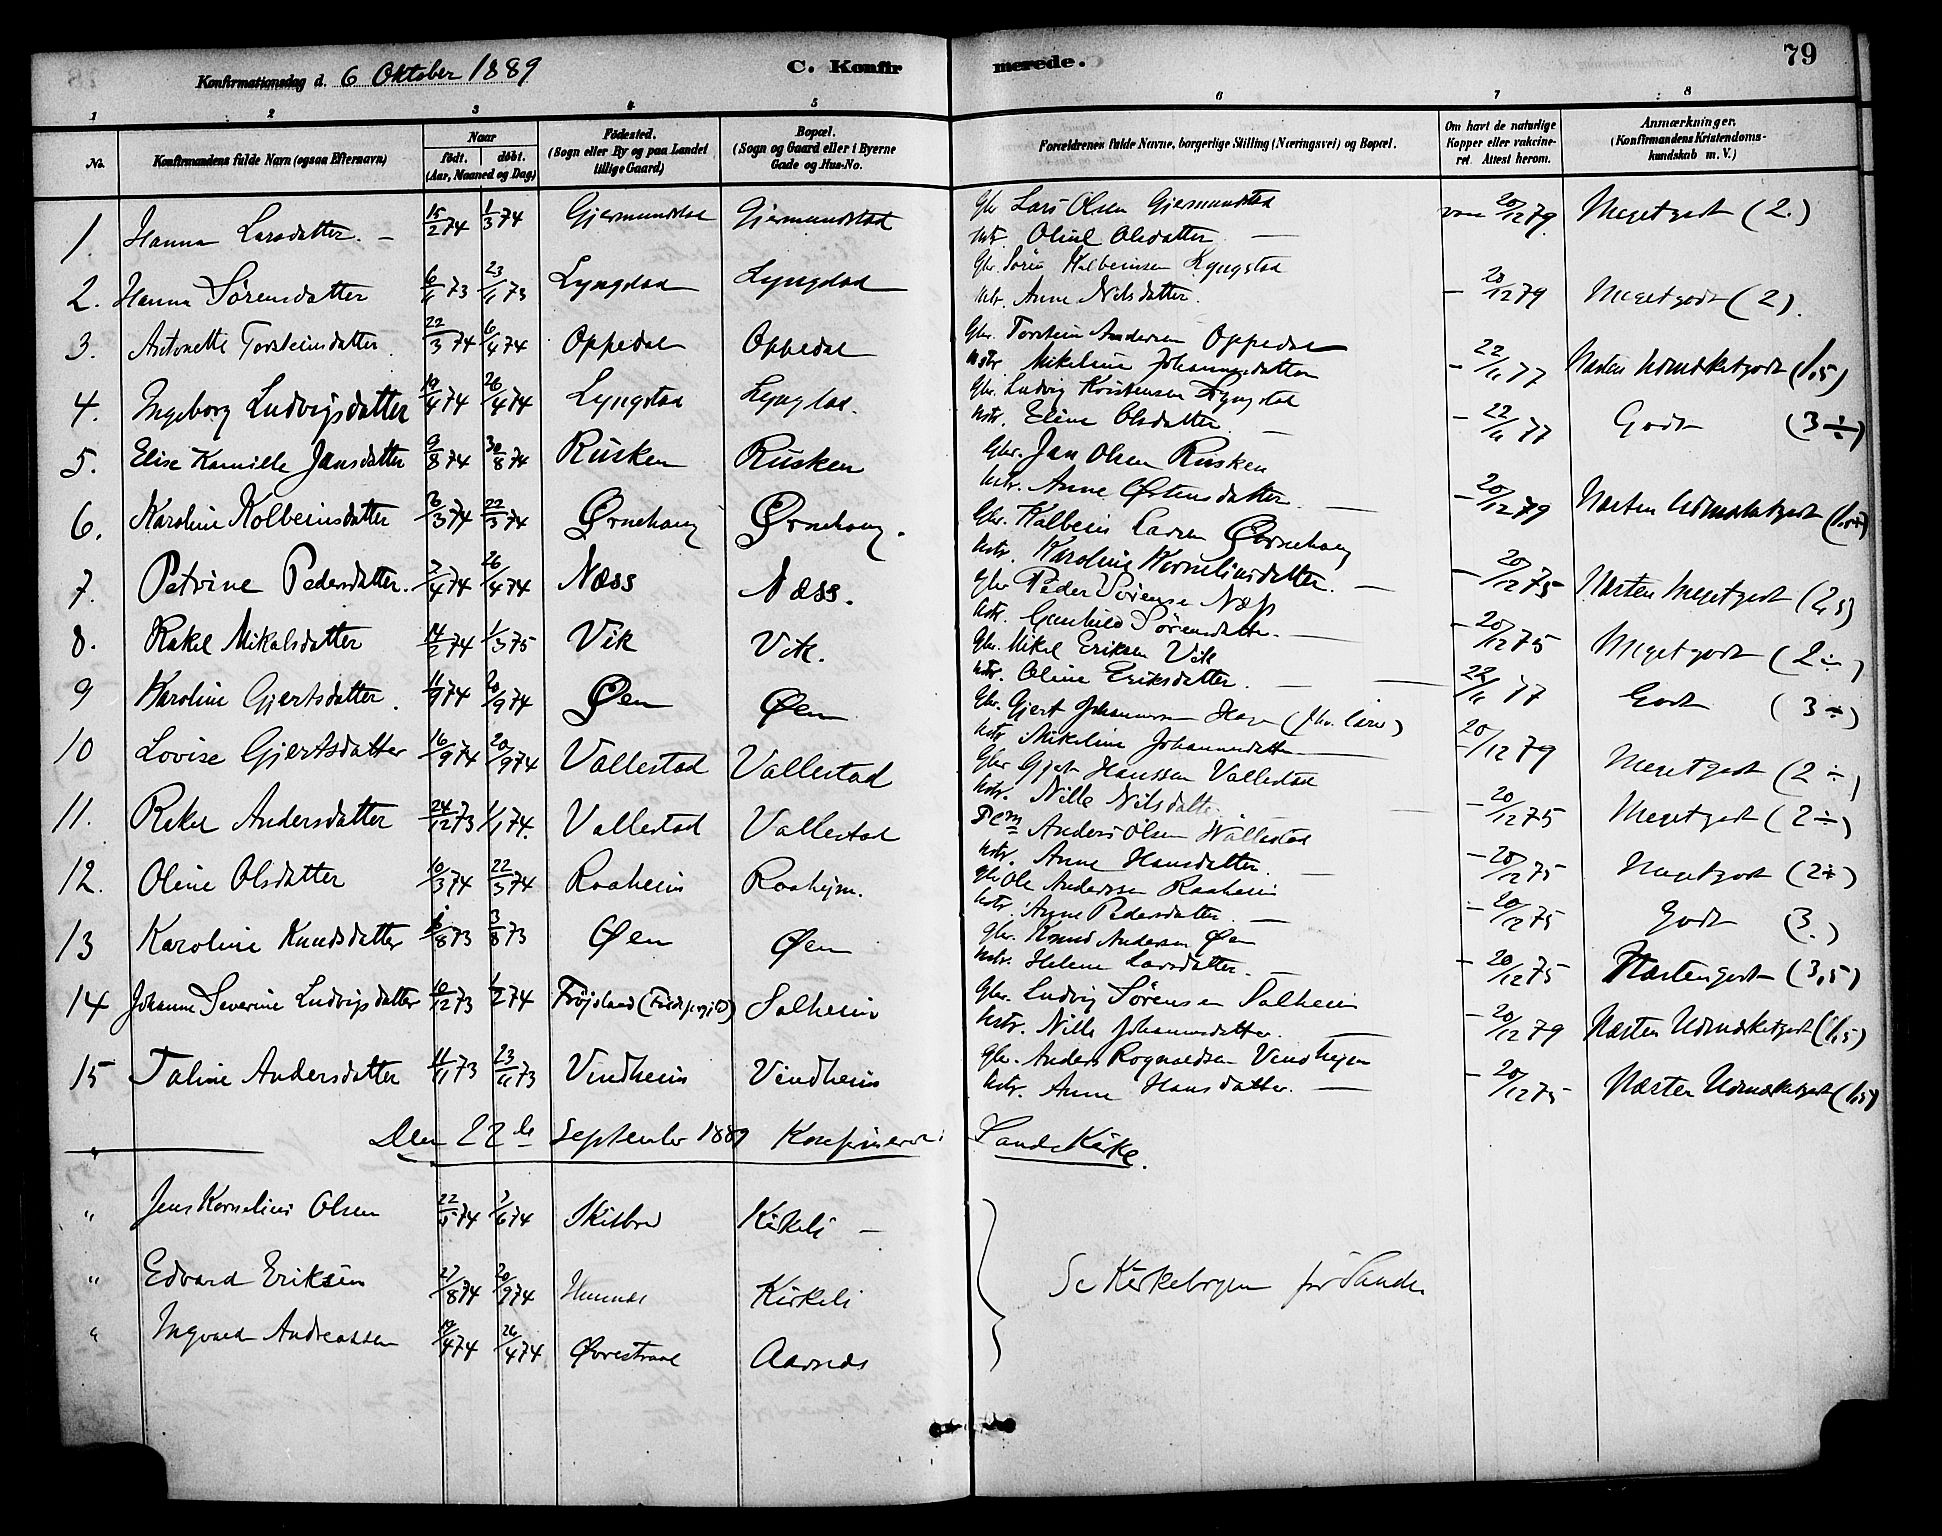 Konfirmationsdag d. 6 Oktober 1889 C. Konfirmerede. 79
1 2 3 4 5 6 7 8
No. Konfirmandens fulde Navn (ogsaa Efternavn) Naar født. døbt. (Aar, Maaned og Dag) Födested. (Sogn eller By og paa Landet tillige Gaard) Bopæl. (Sogn og Gaard eller i Byerne Gade og Hus-No. Forældrenes fulde Navne, borgerlige Stilling (Næringsvei) og Bopæl. Om havt de naturlige Kopper eller vakcineret. Attest herom. Anmærkninger. (Konfirmandens Kristendomskundskab m. V.)
1. Hanna Larsdatter. – 15/2 74 1/3 74 Gjermundstad Gjermundstad Gbr Lars Olsen Gjermundstad vacc 20/12 79. Megetgodt (2.)
Hstr. Oline Olsdatter —
2. Hanna Sørensdatter 6/11 73 23/11 73 Lyngstad Lyngstad Gbr. Søren Kolbeinsen Lyngstad – 20/12 79 Megetgodt (2).
Hstr. Anne Nilsdatter.
3. Antonette Torsteinsdatter. 22/3 74 6/4 74 Oppedal Oppedal Gbr. Torstein Andersen Oppedal – 22/11 77 Næsten Udmærketgodt (1,5)
Hstr. Mikeline Johannesdatter
4. Ingeborg Ludvigsdatter 19/4 74 26/4 74 Lyngstad Lyngstad. Gbr. Ludvig Kristensen Lyngstad – 22/11 77 Godt (3÷)
Hstr. Eline Olsdatter. —
5. Elise Kamille Jansdatter 9/8 74 30/8 74 Rusken Rusken Gbr. Jan Olsen Rusken – 20/12 79 Næsten Udmærketgodt
Hstr. Anne Østensdatter. —
6. Karoline Kolbeinsdatter 22/3 74 Ørnehaug Ørnehaug. Gbr. Kolbein Larsen Ørnehaug – 20/12 75 Næsten Megetgodt (2,5)
Hstr. Karoline Kornelinsdatter. —
7. Petrine Pedersdatter. 7/4 74 26/4 74 Næss Næss. Gbr Peder Sørensen Næss – 20/12 75 Megetgodt (2÷)
Hstr. Gunhild Sørensdatter. —
8. Rakel Mikalsdatter 14/2 74 1/3 75 Vik Vik. Gbr. Mikel Eriksen Vik 22/11 77 Godt (3÷)
Hstr. Oline Eriksdatter. —
9 Karoline Gjertsdatter. 11/9 74 20/9 74 Øen Øen Gbr. Gjert Johannesen 20/12 79 Megetgodt (2÷)
Hstr Mikeline Johannesdatter —
10 Lovise Gjertsdatter 16/9 74 20/9 74 Vallestad Vallestad Gbr Gjert Hanssen Vallestad – 20/12 75 Megetgodt (2÷)
Hstr. Nille Nilsdatter
11. Rakel Andersdatter 24/12 73 1/1 74. Vallestad Vallestad Anders Olsen Wallestad – 20/12 75 Megetgodt (2÷)
Hstr. Anne Hansdatter. —
12. Oline Olsdatter 10/3 74 22/3 74 Raaheim Raaheim. Gbr Ole Andersen Raaheim – 20/12 75 Godt (3.)
Hstr. Anne Pedersdatter. —
13 Karoline Knudsdatter 3/8 73 Øen Øen Gbr. Knud Andersen Øen – 20/12 75 Næstengodt (3,5)
Hstr. Helene Larsdatter. —
14 Johanne Severine Ludvigsdatter 10/12 73 1/2 74 Frøjsland Salheim Gbr. Ludvig Sørensen Salheim – 20/12 79 Næsten Udmærketgodt (1,5)
Hstr. Nille Johannesdatter. —
15 Taline Andersdatter 11/11 73 23/11 73 Vindheim Vindheim Gbr. Anders Rognaldsen Vindheim – 20/12 75 Næsten Udmærketgodt (1,5)
Hstr. Anne Hansdatter. —
Den 22de September 1889 Konfirmeret i Sande Kirke.
" Jens Kornelius Olsen 22/5 74 7/6 74 Skilbred Kirkeli –
" Edvard Eriksen 27/8 74 20/9 74 Kirkeli Se Kirkebogen for Sande
" Ingvald Andreassen 19/4 74 26/4 74 Øvrestraal Aarnes